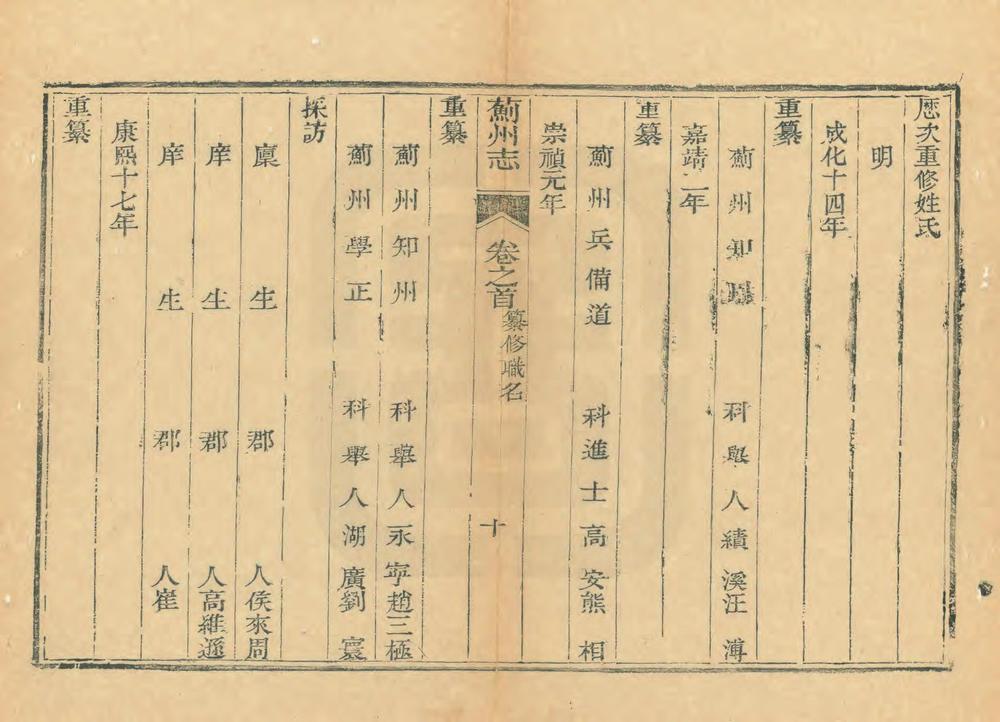 厯次重修姓氏
明
成化十四年
重纂
薊州知州 科舉人績溪汪溥
嘉靖二年
重纂
薊州兵備道 科進士高安熊相
崇禎元年
薊州志 卷之首 纂修職名 十
重纂
薊州知州 科舉人永寧趙三極
薊州學正 科舉人湖廣劉寰
採訪
廩生 郡人侯來周
庠生 郡人高維遜
庠生 郡人崔
康熙十七年
重纂